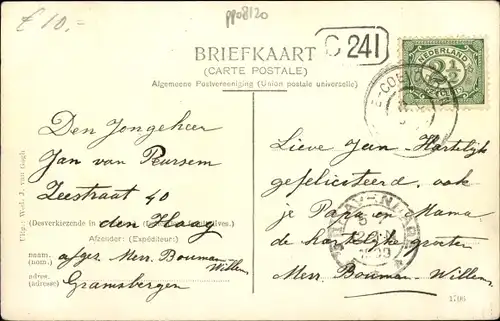 £ 10.-
pp08120
C 241
BRIEFKAART
(CARTE POSTALE)
Algemeene Postvereeniging (Union postale universelle)
NEDERLAND
2½
Den Jongeheer
Jan van Peursem
Zeestraat 40
den Haag
(Desverkiezende in
Afzender: (Expéditeur:)
naam:
(nom)
afz. Mevr. Bouman-
Willems
adres:
(adresse)
Gramsbergen
Uitg.: Wed. J. van Gogh
Lieve Jan. Hartelijk
gefeliciteerd, ook
je Papa en Mama
de hartelijke groeten
Mevr. Bouman-Willems.